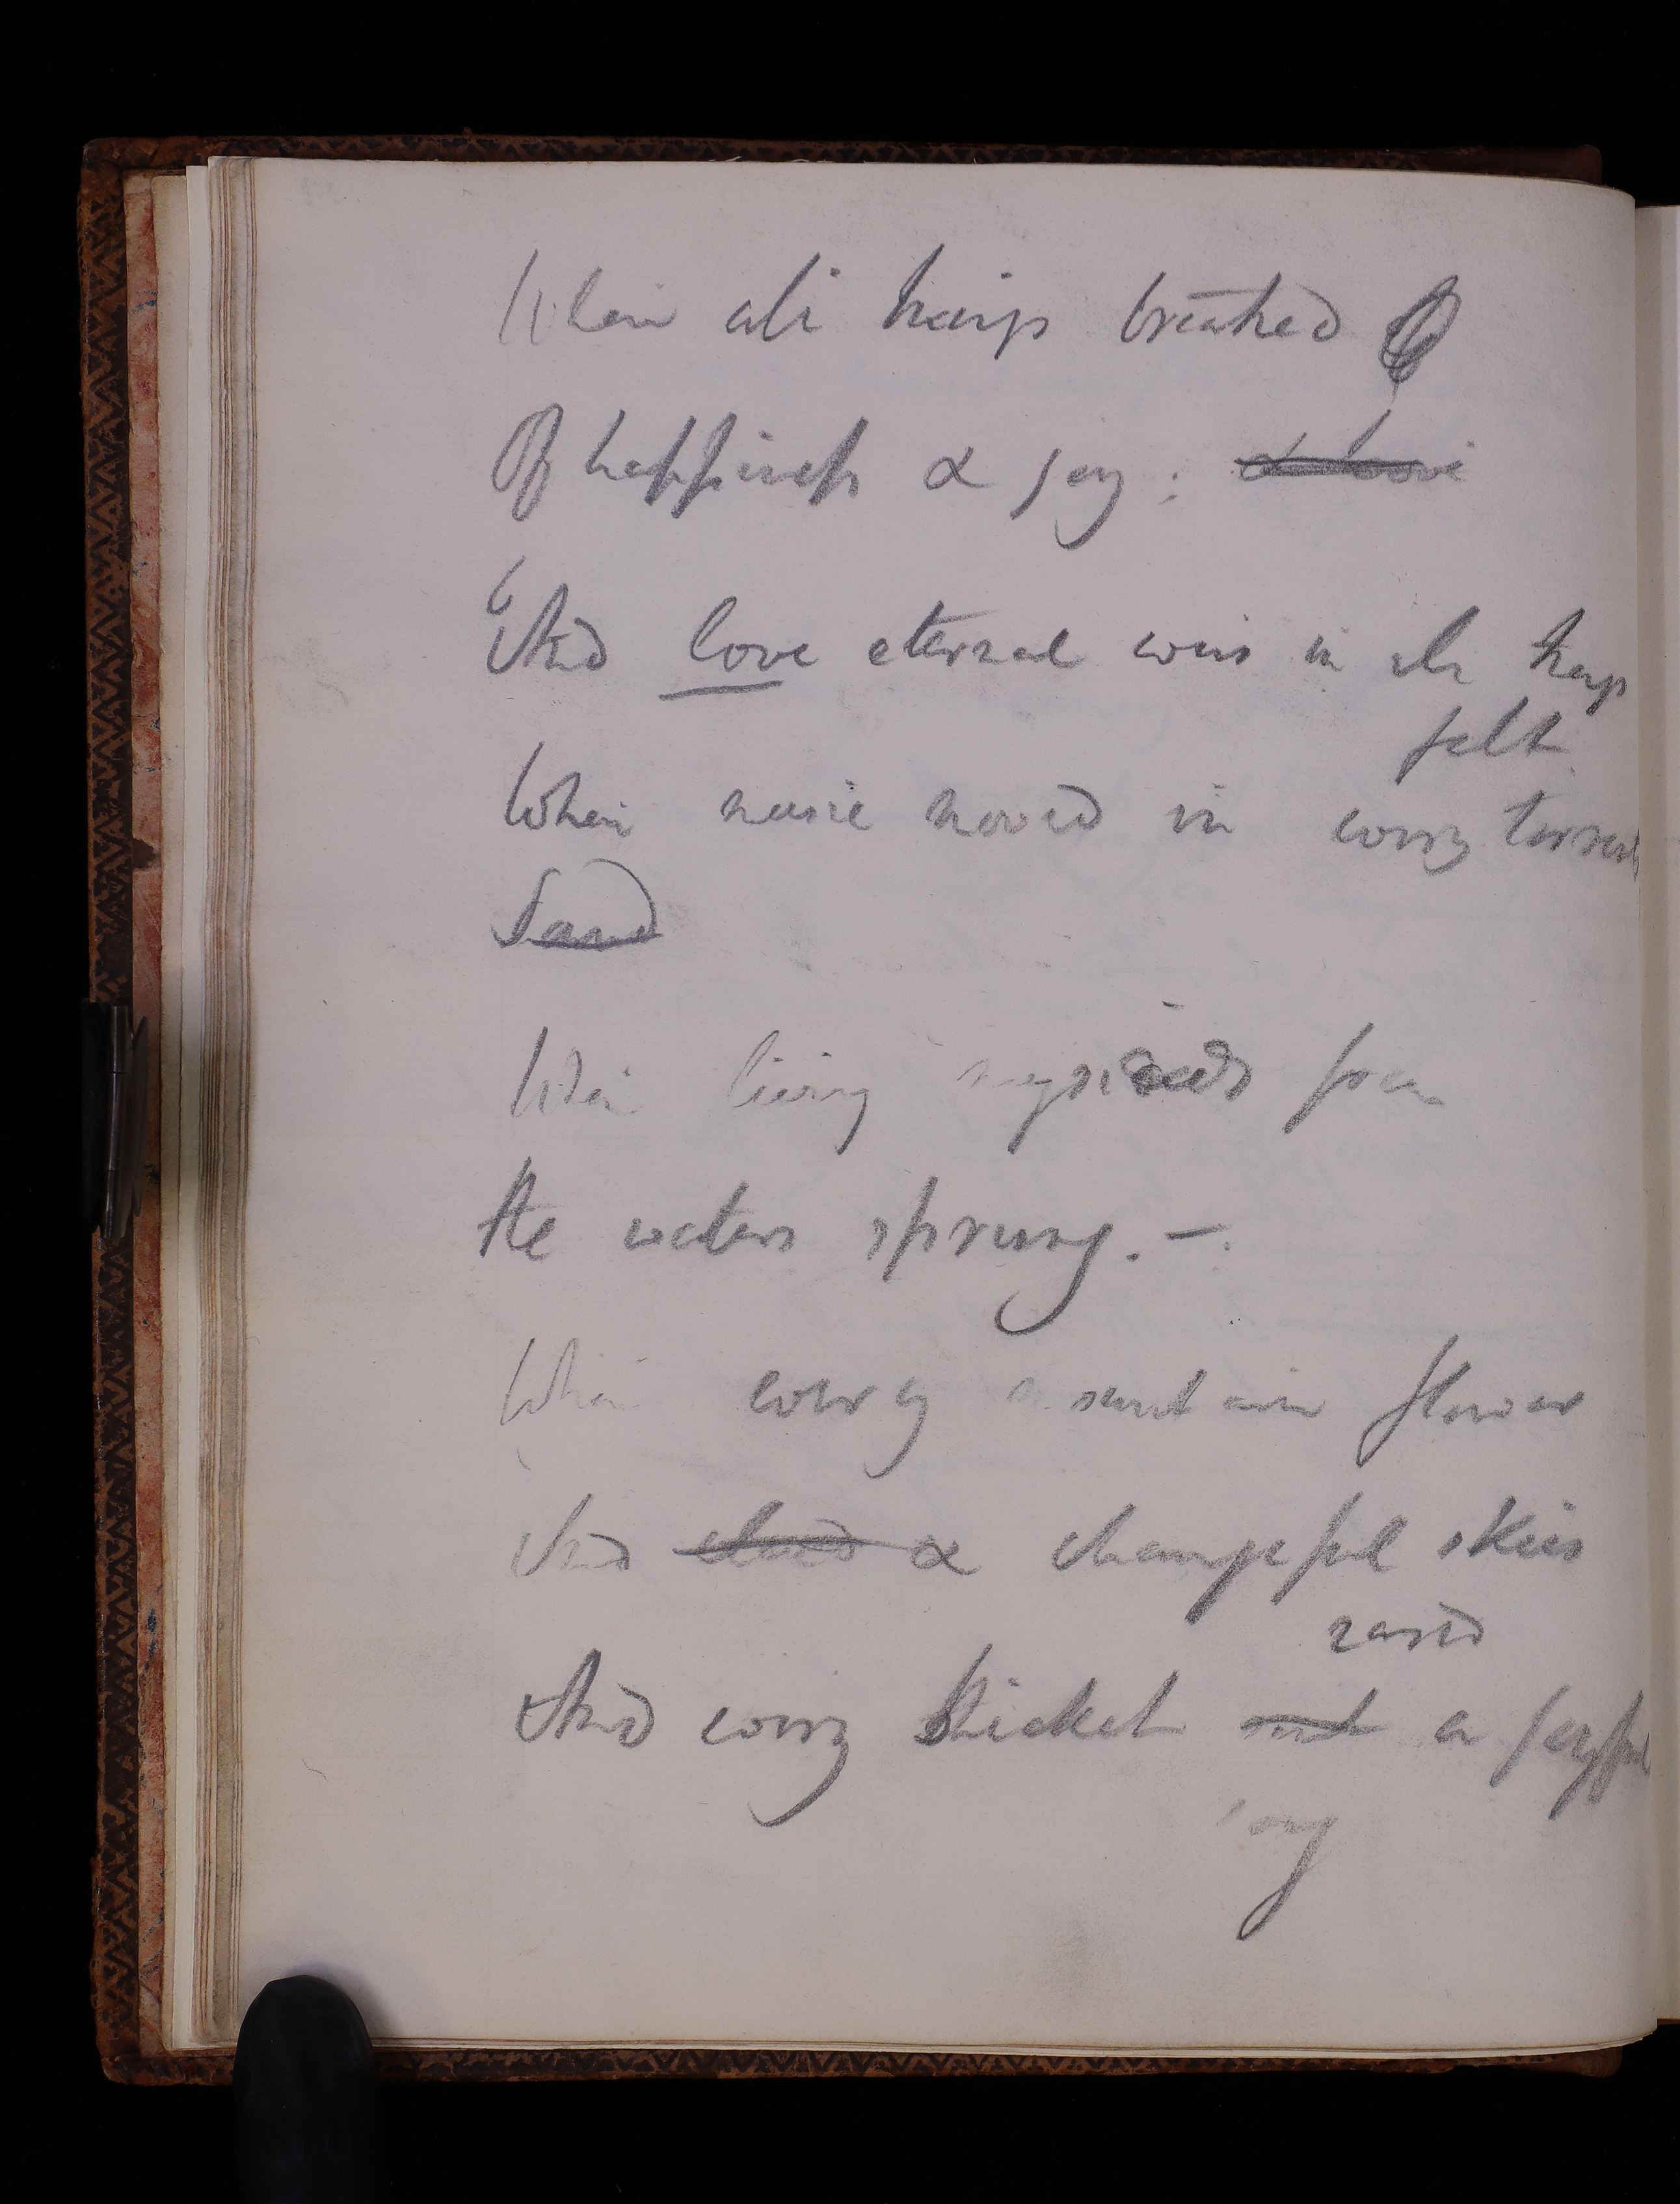 When all things breathed
Of happiness & joy: & love
And love eternal was in all things
felt
When music moved in every torrents
Sand
When living myriads from
the waters sprung. —.
When every mountain flower
And cloud & changeful skies
raised
And every thicket sent a joyful
song